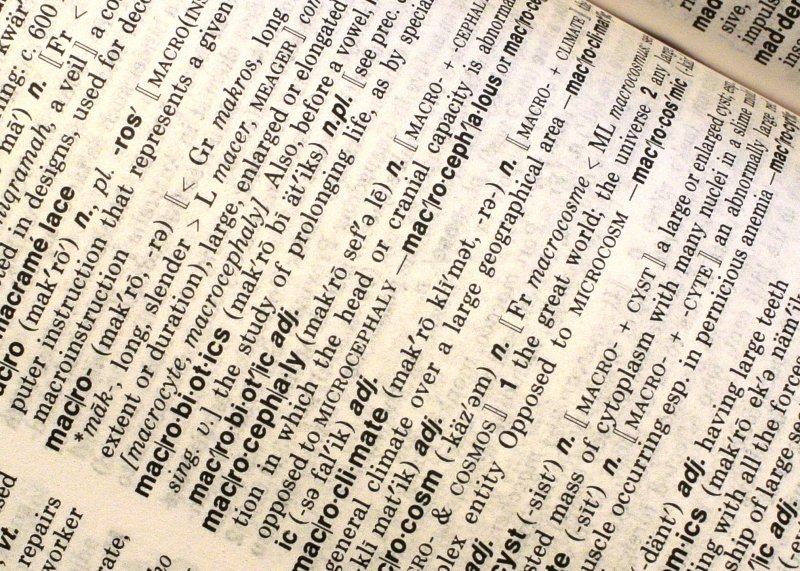 kwär
ning: c. 600
mā′) n. ⟦Fr <
miqramah, a veil⟧ a co
used in designs, used for deco
macramé lace
macro (mak′rō′) n., pl. -ros′ ⟦MACRO(INS
puter instruction that represents a given
macroinstruction
mac|ro- (mak′rō, -rə) ⟦< Gr makros, long
*māk, long, slender > L macer, MEAGER⟧ com
extent or duration), large, enlarged or elongated
[macrocyte, macrocephaly] Also, before a vowel,
mac|ro·bi·ot·ics (mak′rō bī ät′iks) n.pl. ⟦see prec.
sing. v.⟧ the study of prolonging life, as by special
mac|ro·bi·ot′|ic adj.
mac|ro·ceph·a·ly (mak′rō sef′ə lē) n. ⟦MACRO- + -CEPHAL
tion in which the head or cranial capacity is abnorma
opposed to MICROCEPHALY —mac|ro·ceph′|a·lous or mac|ro·ce
ic (-sə fal′ik) adj.
mac|ro·cli·mate (mak′rō klī′mət, -rə-) n. ⟦MACRO- + CLIMATE⟧
general climate over a large geographical area —mac|ro·cli·mat
klī mat′ik) adj.
mac|ro·cosm (-käz′əm) n. ⟦Fr macrocosme < ML macrocosmus:
MACRO- & COSMOS⟧ 1 the great world; the universe 2 any large
complex entity Opposed to MICROCOSM —mac|ro·cos·mic (-
adj.
cyst (-sist′) n. ⟦MACRO- + CYST⟧ a large or enlarged cyst, esp.
sted mass of cytoplasm with many nuclei in a slime
(-sīt′) n. ⟦MACRO- + -CYTE⟧ an abnormally large
uscle occurring esp. in pernicious anemia —mac|ro
(-dänt′) adj. having large teeth
(mak′rō ek′ə näm′ik
ing with all the forces
ship of large se
adj.
vt.
repairs
worker
mad
sive,
impuls
mad·den